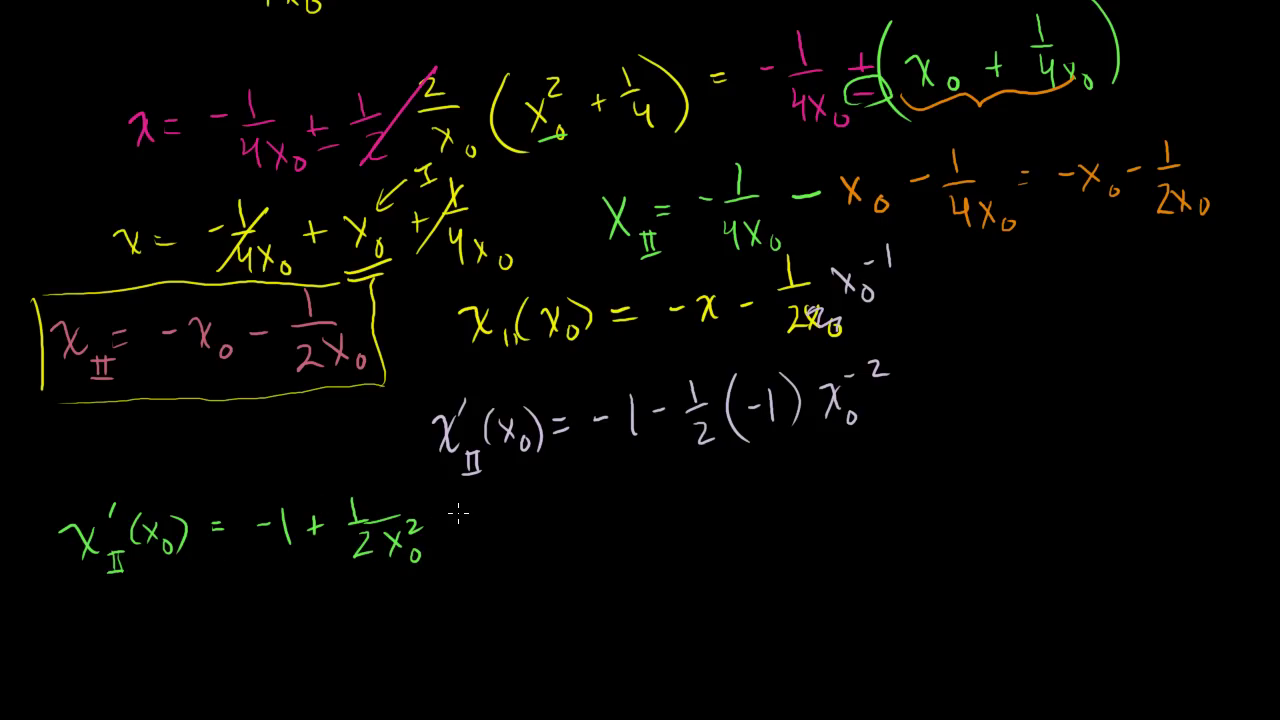 4x₀
x = -1/4x₀ ± 1/2 2/x₀ (x₀² + 1/4) = -1/4x₀ ± (x₀ + 1/4x₀)
I
x = -1/4x₀ + x₀ + 1/4x₀
X_II = -1/4x₀ - x₀ - 1/4x₀ = -x₀ - 1/2x₀
x_II(x₀) = -x - 1/2 x₀⁻¹
x_II = -x₀ - 1/2x₀
x'_II(x₀) = -1 - 1/2 (-1) x₀⁻²
x'_II(x₀) = -1 + 1/2x₀²